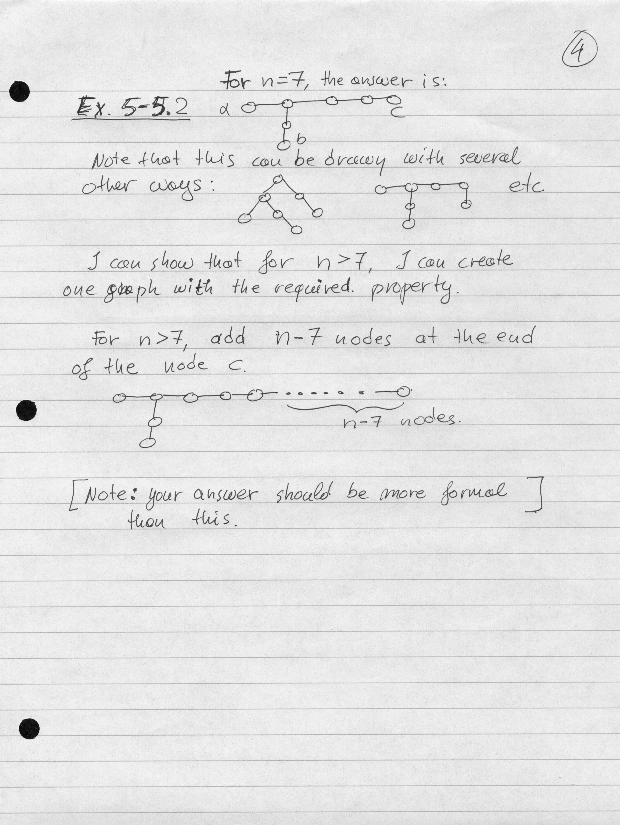 4
For n=7, the answer is:
Ex. 5-5.2
a
c
b
Note that this can be drawy with several
other ways: etc
I can show that for n>7, I can create
one graph with the required. property.
For n>7, add n-7 nodes at the end
of the node c.
n-7 nodes.
[Note: your answer should be more formal]
than this.